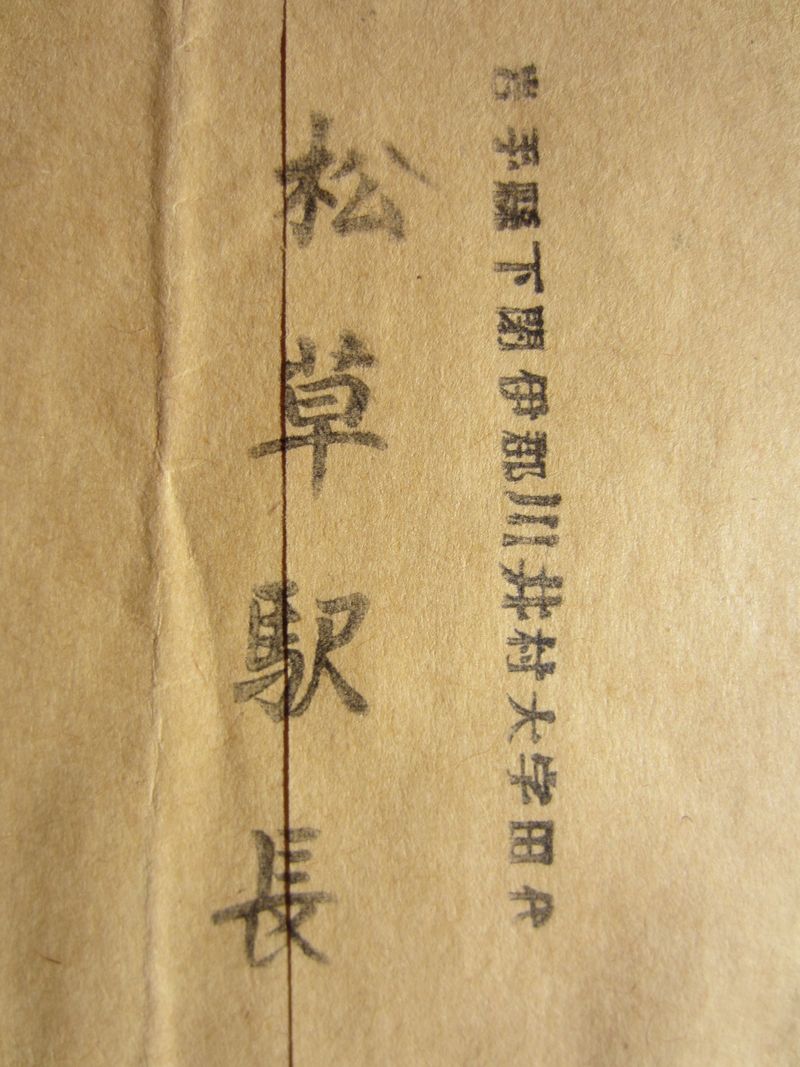 岩手縣下閉伊郡川井村大字田代
松草駅長